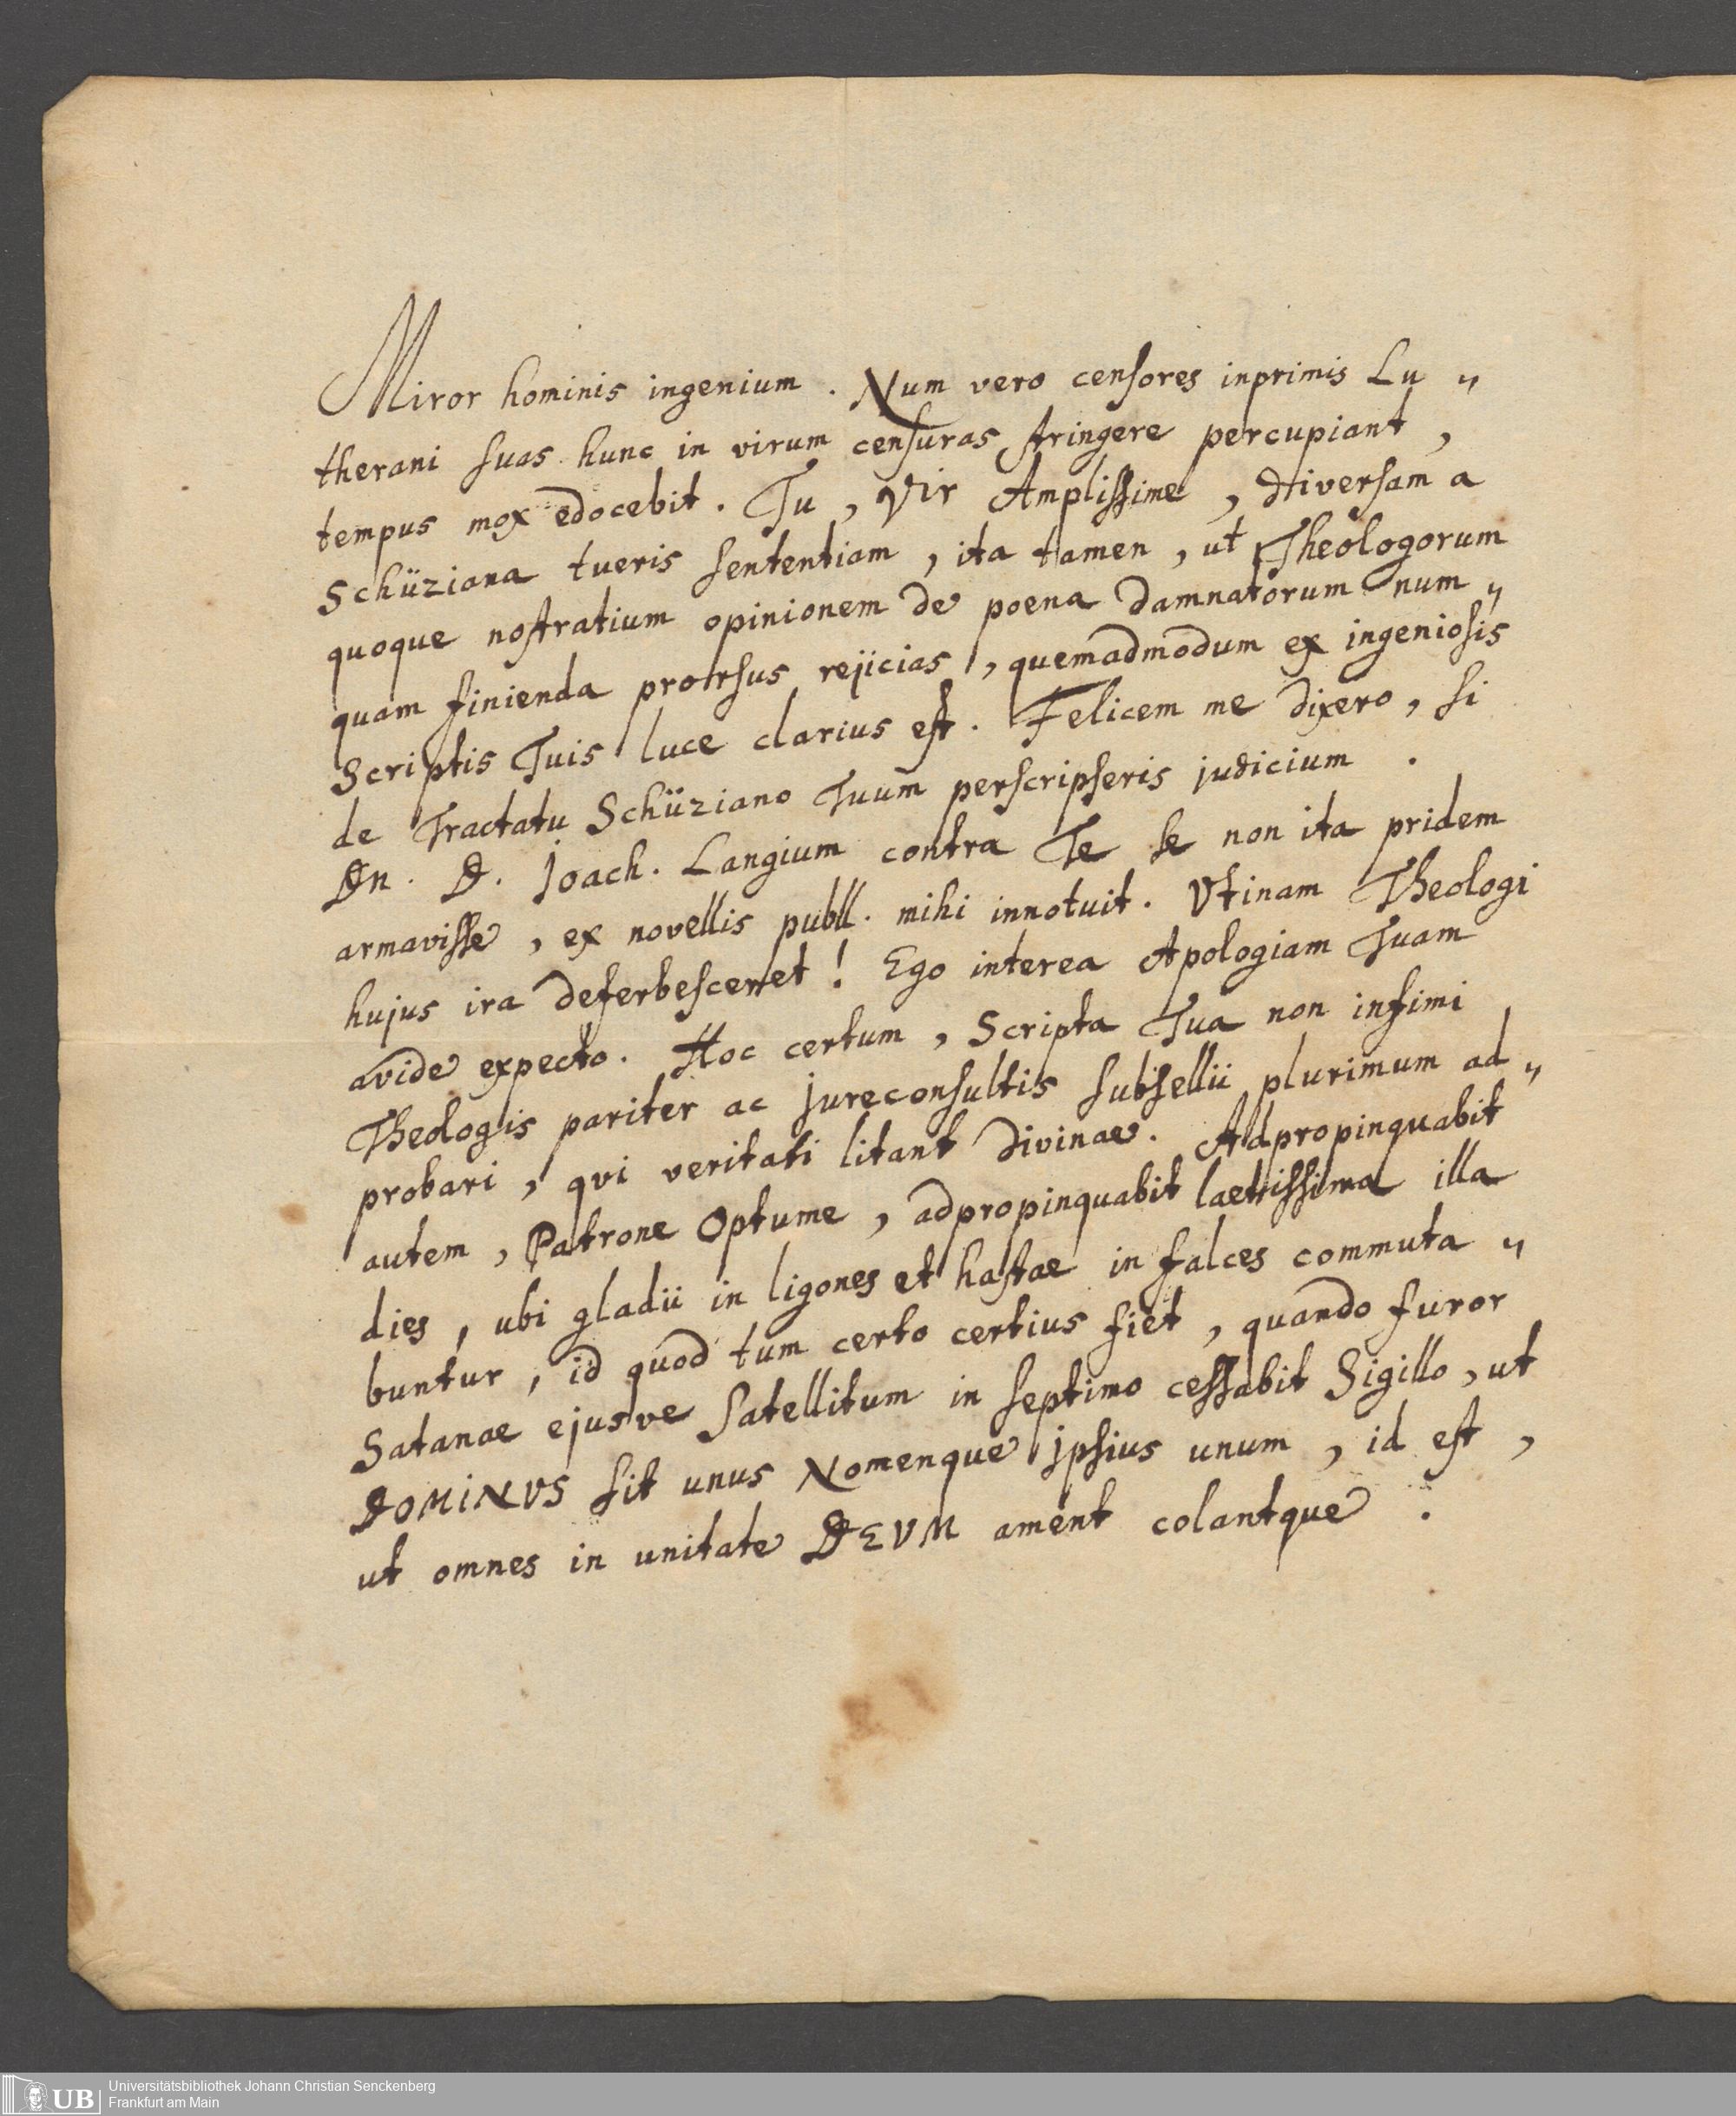 Miror hominis ingenium. Num vero censores inprimis Lu„
therani suas hunc in virum censuras stringere percupiant,
tempus mox edocebit. Tu, Vir Amplissime, diversam a
Schüziana tueris sententiam, ita tamen, ut Theologorum
quoque nostratium opinionem de poena damnatorum num„
quam finienda prorsus rejicias, quemadmodum ex ingeniosis
Scriptis Tuis luce clarius est. Felicem me dixero, si
de Tractatu Schüziano Tuum perscripseris judicium.
Dn. D. Joach. Langium contra Te se non ita pridem
armavisse, ex novellis publl. mihi innotuit. Vtinam Theologi
hujus ira deferbesceret! Ego interea Apologiam Tuam
avide expecto. Hoc certum, Scripta Tua non infimi
Theologis pariter ac Jureconsultis subsellii plurimum ad„
probari, qvi veritati litant divinae. Adpropinquabit
autem, Patrone Optume, adpropinquabit laetissima illa
dies, ubi gladii in ligones et hastae in falces commuta„
buntur, id quod tum certo certius fiet, quando furor
Satanae ejusve Satellitum in septimo cessabit Sigillo, ut
DOMINVS sit unus Nomenque Ipsius unum, id est,
ut omnes in unitate DEVM ament colantque.
UB
Universitätsbibliothek Johann Christian Senckenberg
Frankfurt am Main